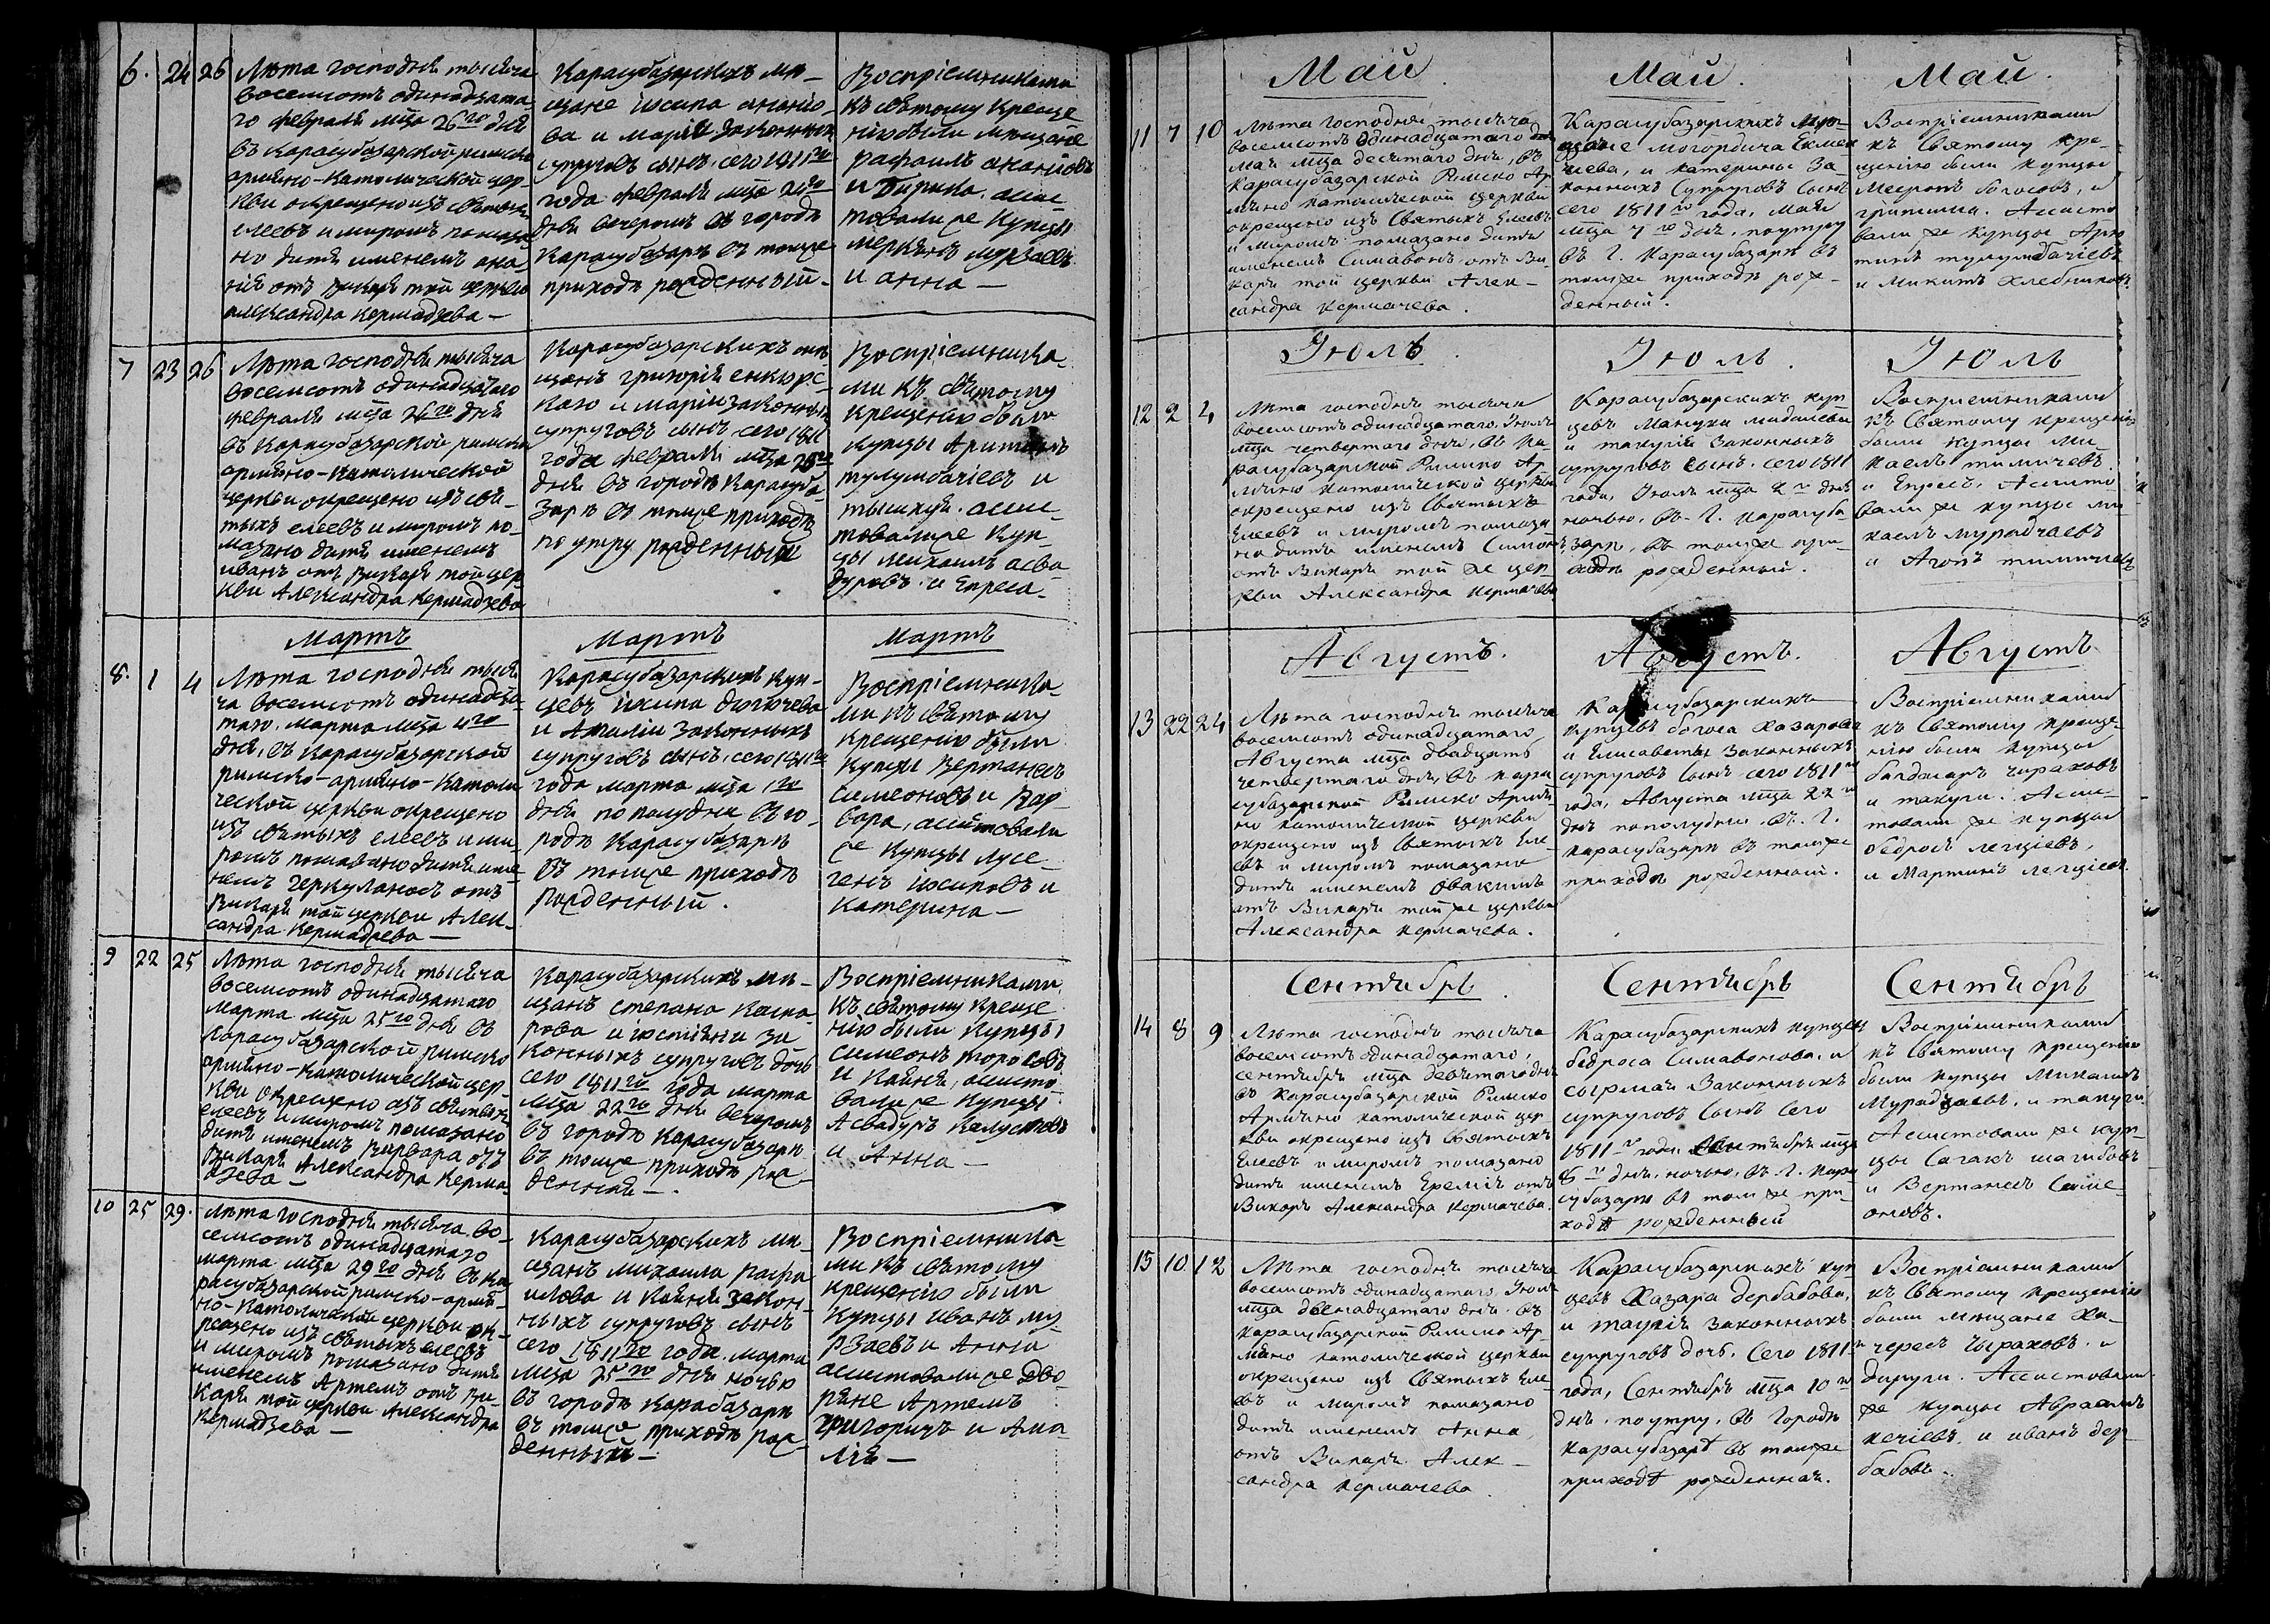 6. 24 26
Лѣта господня тысяча
восемсотъ одинадцата-
го февраля мца 26го дня
въ Карасубазарской римско
армяно-Католической цер-
кви окрещено изъ святыхъ
елеевъ и миромъ помаза
но дитя именемъ ана-
нія отъ викаря той церкви
александра Кермадзева —
Карасубазарскихъ мѣ-
щане іосипа ананіо-
ва и маріи законныхъ
супруговъ сынъ, сего 1811го
года февраля мца 24го
дня вечеромъ въ городѣ
Карасубазарѣ въ томже
приходѣ рожденный.
Воспріемниками
къ святому Креще
нію были мѣщане
рафаилъ ананіовъ
и Бирика. асис-
товали же Купцы
меркѣнъ мурзаевъ
и анна —
7 23 26
Лѣта господня тысяча
восемсотъ одинадцатаго
февраля мца 26го дня
въ Карасубазарской римско
армяно-Католической
церкви окрещено изъ свя-
тыхъ елеевъ и миромъ по-
мазано дитя именемъ
иванъ отъ викаря той цер
кви Александра Кермадзева
Карасубазарскихъ мѣ
щанъ григорія енкюрс-
каго и маріи законныхъ
супруговъ сынъ сего 1811
года февраля мца 23го
дня въ городѣ Карасуба-
зарѣ въ томже приходѣ
по утру рожденный
Воспріемника-
ми къ святому
крещенію были
купцы Аритинъ
тулумбачіевъ и
тышхун. асис-
товали же Куп-
цы михаилъ асва-
дуровъ и Епреса-
Мартъ
8. 1 4
Лѣта господня тыся
ча восемсотъ одинадца-
таго, марта мца 4го
дня, въ Карасубазарской
римско-армяно-Католи
ческой церкви окрещено
изъ святыхъ елеевъ и ми-
ромъ помазано дитя име-
немъ геркуланосъ отъ
викаря той церкви Алек-
сандра Кермадзева —
Мартъ
Карасубазарскихъ куп-
цевъ іосипа дюгючева
и Амаліи Законныхъ
супруговъ сынъ, сего 1811го
года марта мца 1го
дня по полудни въ го-
родѣ Карасубазарѣ
въ томже приходѣ
рожденный.
Мартъ
Воспріемника-
ми къ святому
крещенію были
Купцы Вертанесъ
симеоновъ и Вар-
вара, асистовали
же Купцы лусе-
генъ іосиповъ и
Катерина —
9 22 25
Лѣта господня тысяча
восемсотъ одинадцатаго
марта мца 25го дня въ
Карасубазарской римско
армяно-Католической цер-
кви окрещено изъ святыхъ
елеевъ и миромъ помазано
дитя именемъ Варвара отъ
викаря Александра Керма-
дзева —
Карасубазарскихъ мѣ-
щанъ степана Каспа-
рова и іюстіяни за
конныхъ супруговъ дочь
сего 1811го года марта
мца 22го дня вечеромъ
въ городѣ Карасубазарѣ
въ томже приходѣ рож
денная —
Воспріемниками
къ святому Креще
нію были Купцы
симеонъ торосовъ
и Каяня, асисто-
вали же Купцы
Асвадуръ Калустовъ
и Анна —
10 25 29.
Лѣта господня тысяча во-
семсотъ одинадцатаго
марта мца 29го дня въ Ка
расубазарской римско-армя-
но-Католической церкви ок-
рещено изъ святыхъ елеевъ
и миромъ помазано дитя
именемъ Артемъ отъ ви-
каря той церкви Александра
Кермадзева —
Карасубазарскихъ мѣ-
щанъ михаила Рафа
илова и Каяня закон-
ныхъ супруговъ сынъ
сего 1811го года. марта
мца 25го дня ночью
въ городѣ Карабазарѣ
въ томже приходѣ рож-
денный —
Воспріемника-
ми къ святому
крещенію были
Купцы Иванъ му-
рзаевъ и Анна
асистовали же дво-
ряне Артемъ
григоричъ и Ама
лія —
Май
11 7 10
Лѣта господня тысяча
восемсотъ одинадцатаго
маія мца десятаго дня, въ
Карасубазарской Римско Ар-
мяно католической церкви
окрещено изъ Святыхъ Елеевъ
и миромъ помазано дитя
именемъ Симавонъ, отъ Ви-
каря той церкви Алек-
сандра Кермачева.
Май.
Карасубазарскихъ Мѣ-
щане могордича Екмек
чіева, и катерины За-
конныхъ Супруговъ Сынъ
сего 1811го года, Маія
мца 7го дня, поутру
въ Г. Карасубазарѣ въ
томже приходѣ рож-
денный.
Май.
Воспріемниками
къ Святому Кре-
щенію были купцы
Меетонъ богосовъ, и
грипима. Асисто
вали же купцы Арю
тинъ тулумбачіевъ
и Микитъ Хлебниковъ.
Іюль
12 2 4
Лѣта господня тысяча
восемсотъ одинадцатаго Іюля
мца четвертаго дня, въ Ка-
расубазарской Римско Ар-
мяно католической церкви
окрещено изъ Святыхъ
Елеевъ и миромъ помаза
но дитя именемъ Симонъ
отъ Викаря той же цер-
кви Александра Кермачева
Іюль.
Карасубазарскихъ куп
цевъ Манука мадалева
и такугіи Законныхъ
супруговъ Сынъ. сего 1811
года, Іюля мца 2го дня
ночью, въ Г. Карасуба-
зарѣ, въ томже при-
ходѣ рожденный.
Іюль
Воспріемниками
къ Святому крещенію
были купцы Ми-
каелъ тиличевъ
и Епресъ, Асисто
вали же купцы ми
каелъ мурадчаевъ
и Агопъ тиличевъ
Августъ.
13 22 24
Лѣта господня тысяча
восемсотъ одинадцатаго
Августа мца двадцать
четвертаго дня, въ Кара
субазарской Римско Армя
но католической церкви
окрещено изъ Святыхъ Еле
евъ и миромъ помазано
дитя именемъ Овакимъ
отъ Викаря той же церкви
Александра Кермачева.
Августъ.
Карасубазарскихъ
купцевъ богоса Хазарова
и Елисаветы Законныхъ
супруговъ Сынъ сего 1811го
года, Августа мца 22го
дня пополудни въ Г.
Карасубазарѣ въ томже
приходѣ рожденный.
Августъ
Воспріемниками
къ Святому креще-
нію были купцы
багдасаръ чираховъ
и такуги. Асис-
товали же купцы
бедросъ легціевъ,
и Мартинъ легціевъ.
Сентябрь
14 8 9
Лѣта господня тысяча
восемсотъ одинадцатаго,
сентября мца девятаго дня
въ Карасубазарской Римско
Армяно католической цер
кви окрещено изъ Святыхъ
Елеевъ и миромъ помазано
дитя именемъ Еремія отъ
Викаря Александра Кермачева.
Сентябрь
Карасубазарскихъ купцевъ
бедроса Симавонова, и
сырмаи Законныхъ
супруговъ Сынъ сего
1811го года, Сентября мца
8го дня, ночью, въ Г. Кара
субазарѣ въ томже при-
ходѣ рожденный
Сентябрь
Воспріемниками
къ Святому крещенію
были купцы Микаилъ
Мурадчаевъ, и такуги.
Асистовали же куп-
цы Сагакъ шагибовъ
и Вертанесъ Симе-
оновъ.
15 10 12
Лѣта господня тысяча
восемсотъ одинадцатаго, Іюля
мца двенадцатаго дня въ
Карасубазарской Римско Ар-
мяно католической церкви
окрещено изъ Святыхъ Еле-
евъ и миромъ помазано
дитя именемъ Анна,
отъ Викаря Алек-
сандра Кермачева.
Карасубазарскихъ куп-
цевъ Хазара дербабова,
и такугіи Законныхъ
супруговъ дочь. Сего 1811го
года, Сентября мца 10го
дня, поутру, въ городѣ
Карасубазарѣ въ томже
приходѣ рожденная.
Воспріемниками
къ Святому крещенію
были мѣщане Ха-
чересъ чыраховъ. и
дируги. Асистовали
же купцы Авраамъ
кечіевъ, и иванъ дер-
бабовъ.